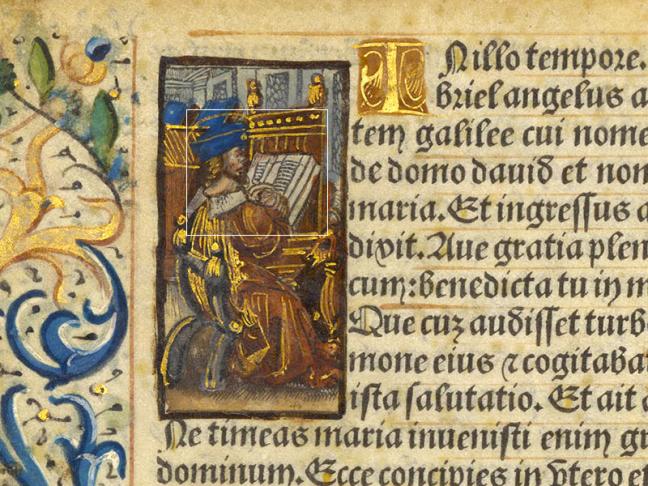 INillo tempore.
briel angelus a
tem galilee cui nome
de domo dauid et nom
maria. Et ingressus a
dixit. Aue gratia plen
cum: benedicta tu in m
Que cuz audisset turb
mone eius ⁊ cogitabat
ista salutatio. Et ait a
Ne timeas maria inuenisti enim gr
dominum. Ecce concipies in vtero et